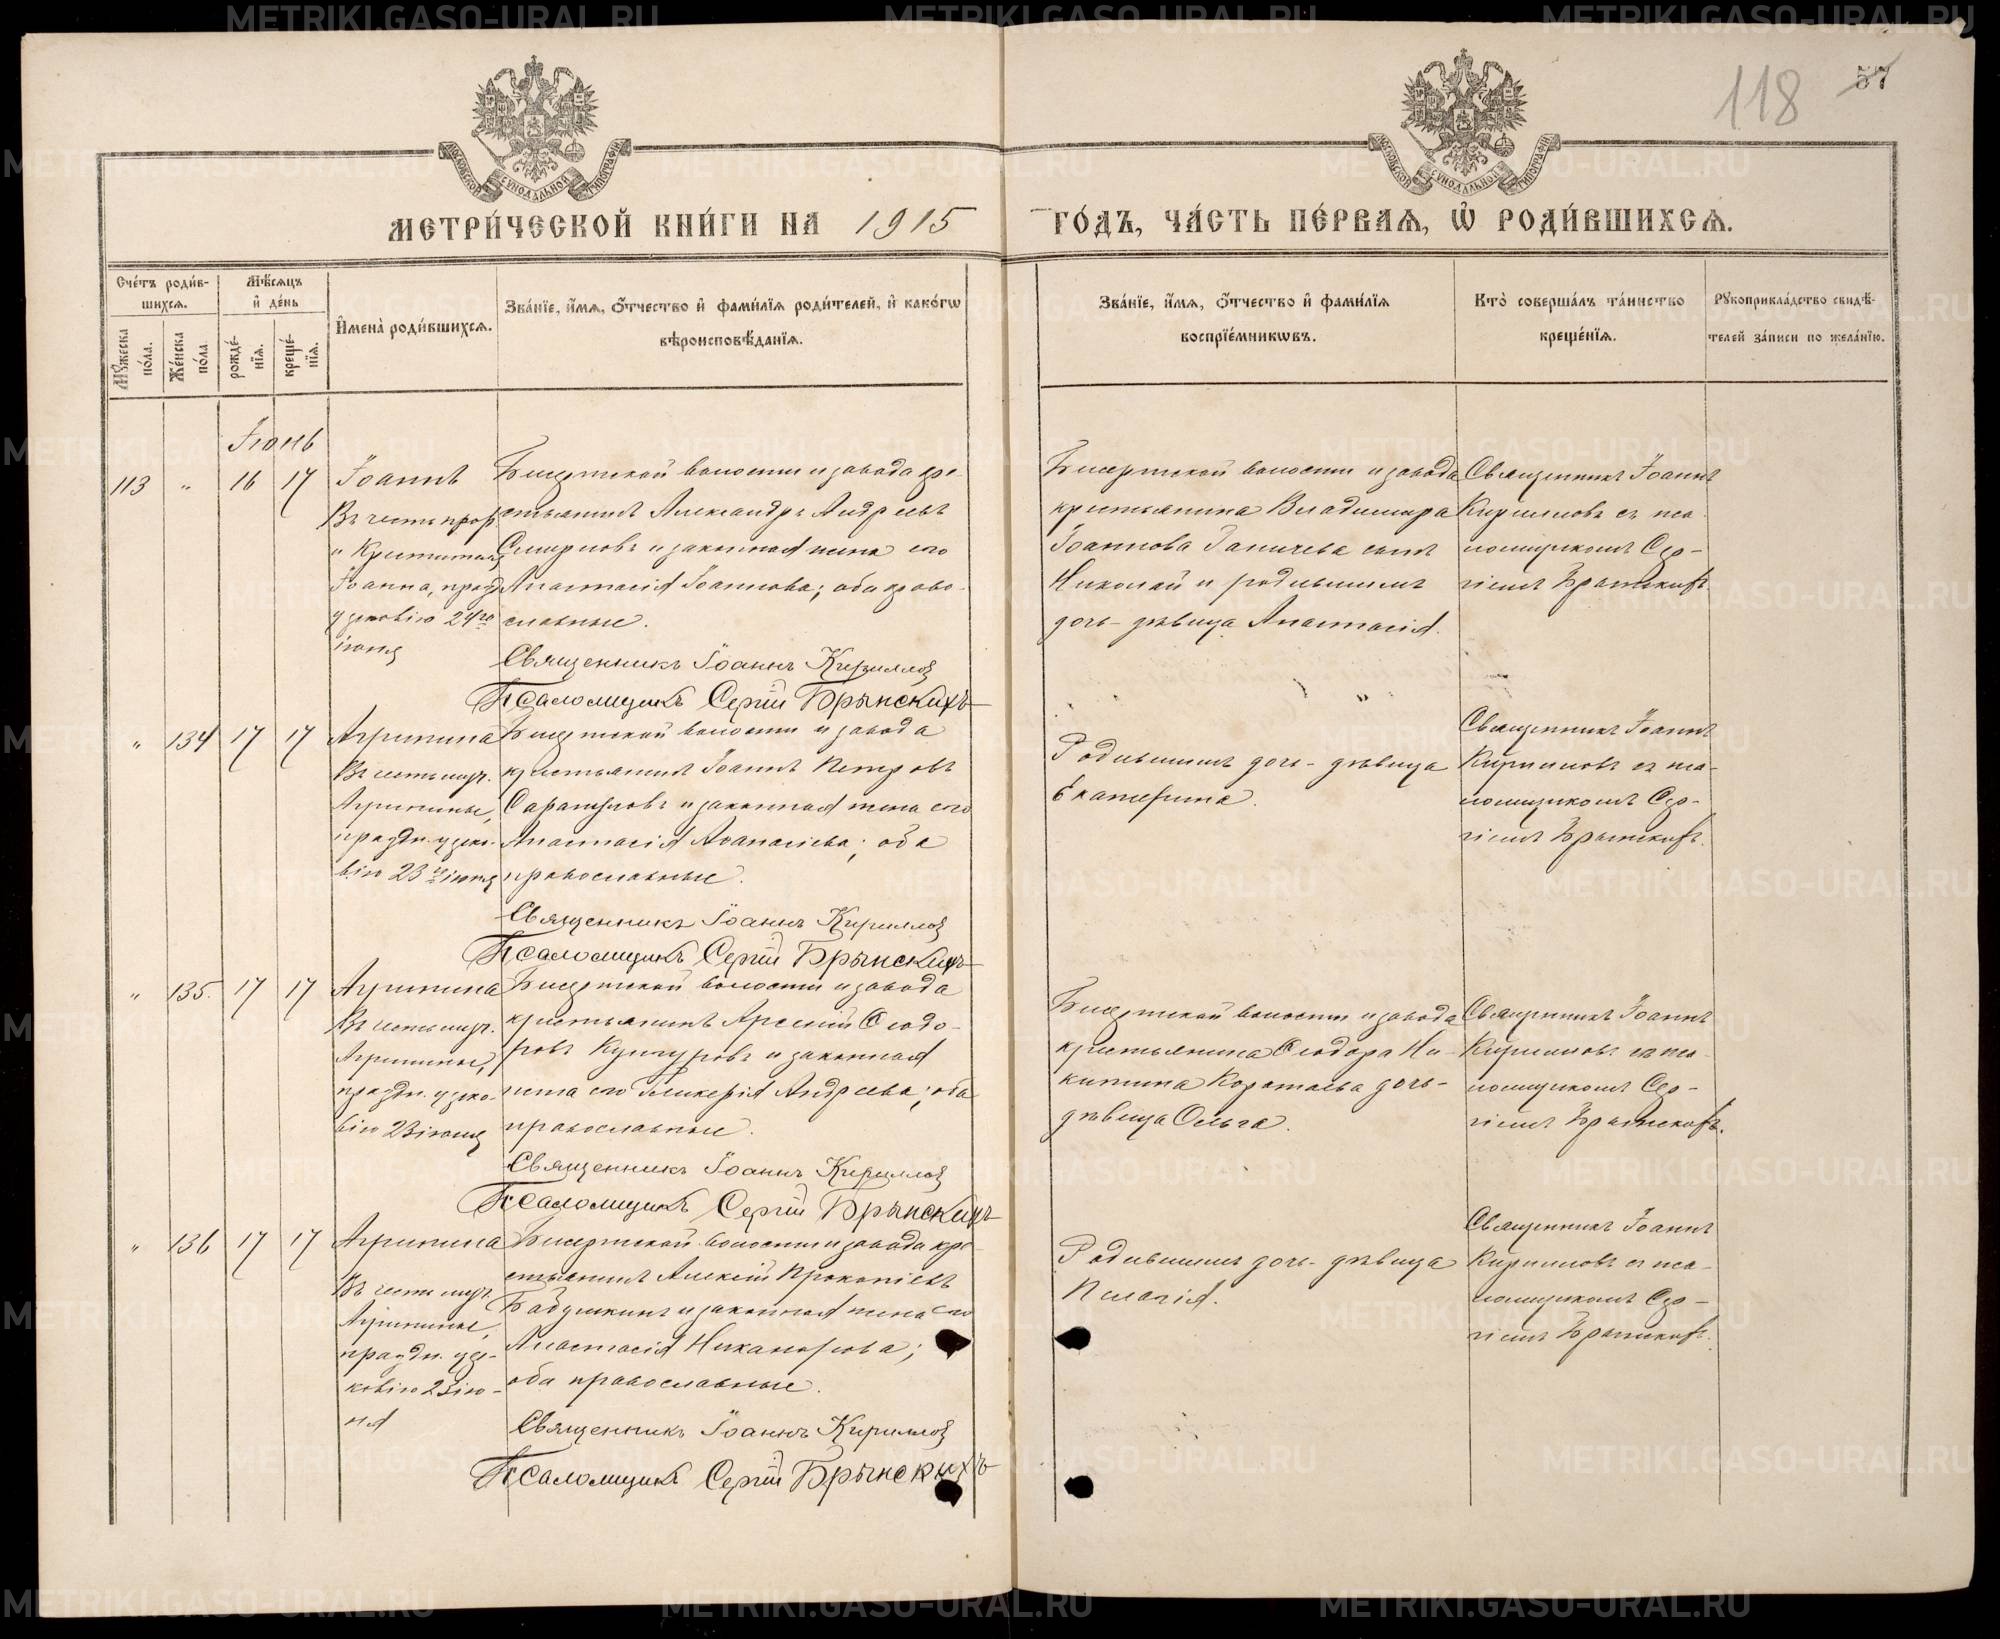 118 57
МОСКОВСКОЙ СѴНОДАЛЬНОЙ ТИПОГРАФІИ
МОСКОВСКОЙ СѴНОДАЛЬНОЙ ТИПОГРАФІИ
МЕТРИ́ЧЕСКОЙ КНИ́ГИ НА 1915 ГО́ДЪ, ЧА́СТЬ ПЕ́РВАЯ, Ѽ РОДИ́ВШИХСЯ.
Сче́тъ роди́в-
шихся.
Мѣ́сяцъ
и҆ де́нь
Мꙋ́жеска по́ла.
Же́нска по́ла
рожде́-
нїя.
креще́-
нїя.
И҆мена̀ роди́вшихся.
Зва́нїе, и҆́мя, ѻ҆́тчество и҆ фами́лїя роди́телей, и҆ како́гѡ
вѣроисповѣ́данїя.
Зва́нїе, и҆́мя, ѻ҆́тчество и҆ фами́лїя
воспрїе́мникѡвъ.
Кто̀ соверша́лъ та́инство
креще́нїя.
Рꙋкоприкла́дство свидѣ́-
телей за́писи по жела́нїю.
Іюнь
113 " 16 17
Іоаннъ
Въ честь прор.
и Крестителя
Іоанна, празд.
церковію 24го
іюня
Бисертской волости и завода кре-
стьянинъ Александръ Андреевъ
Смирновъ и законная жена его
Анастасія Іоаннова; оба право-
славные.
Священникъ Іоаннъ Кирилловъ
Псаломщикъ Сергій Брынскихъ
Бисертской волости и завода
крестьянина Владимира
Іоаннова сынъ
Николай и родившимъ
дочь-дѣвица Анастасія.
Священникъ Іоаннъ
Кирилловъ съ пса-
ломщикомъ Сер-
гіемъ Брынскихъ.
" 134 17 17
Агрипина
Въ честь муч.
Агрипины,
праздн. церко-
вію 23го іюня
Бисертской волости и завода
крестьянинъ Іоаннъ Петровъ
Сарапуловъ и законная жена его
Анастасія Аѳанасіева; оба
православные.
Священникъ Іоаннъ Кирилловъ
Псаломщикъ Сергій Брынскихъ
Родившимъ дочь-дѣвица
Екатерина.
Священникъ Іоаннъ
Кирилловъ съ пса-
ломщикомъ Сер-
гіемъ Брынскихъ.
" 135. 17 17
Агрипина
Въ честь муч.
Агрипины,
праздн. церко-
вію 23 іюня
Бисертской волости и завода
крестьянинъ Арсеній Ѳеодо-
ровъ Кунгуровъ и законная
жена его Гликерія Андреева; оба
православные.
Священникъ Іоаннъ Кирилловъ
Псаломщикъ Сергій Брынскихъ
Бисертской волости и завода
крестьянина Ѳеодора Ни-
китина Коротаева дочь-
дѣвица Ольга.
Священникъ Іоаннъ
Кирилловъ съ пса-
ломщикомъ Сер-
гіемъ Брынскихъ.
" 136 17 17
Агрипина
Въ честь муч.
Агрипины,
праздн. цер-
ковію 23 ію-
ня
Бисертской волости и завода кре-
стьянинъ Алексій Прокопіевъ
Бабушкинъ и законная жена его
Анастасія Никанорова;
оба православные.
Священникъ Іоаннъ Кирилловъ
Псаломщикъ Сергій Брынскихъ
Родившимъ дочь-дѣвица
Пелагія.
Священникъ Іоаннъ
Кирилловъ съ пса-
ломщикомъ Сер-
гіемъ Брынскихъ.
METRIKI.GASO-URAL.RU